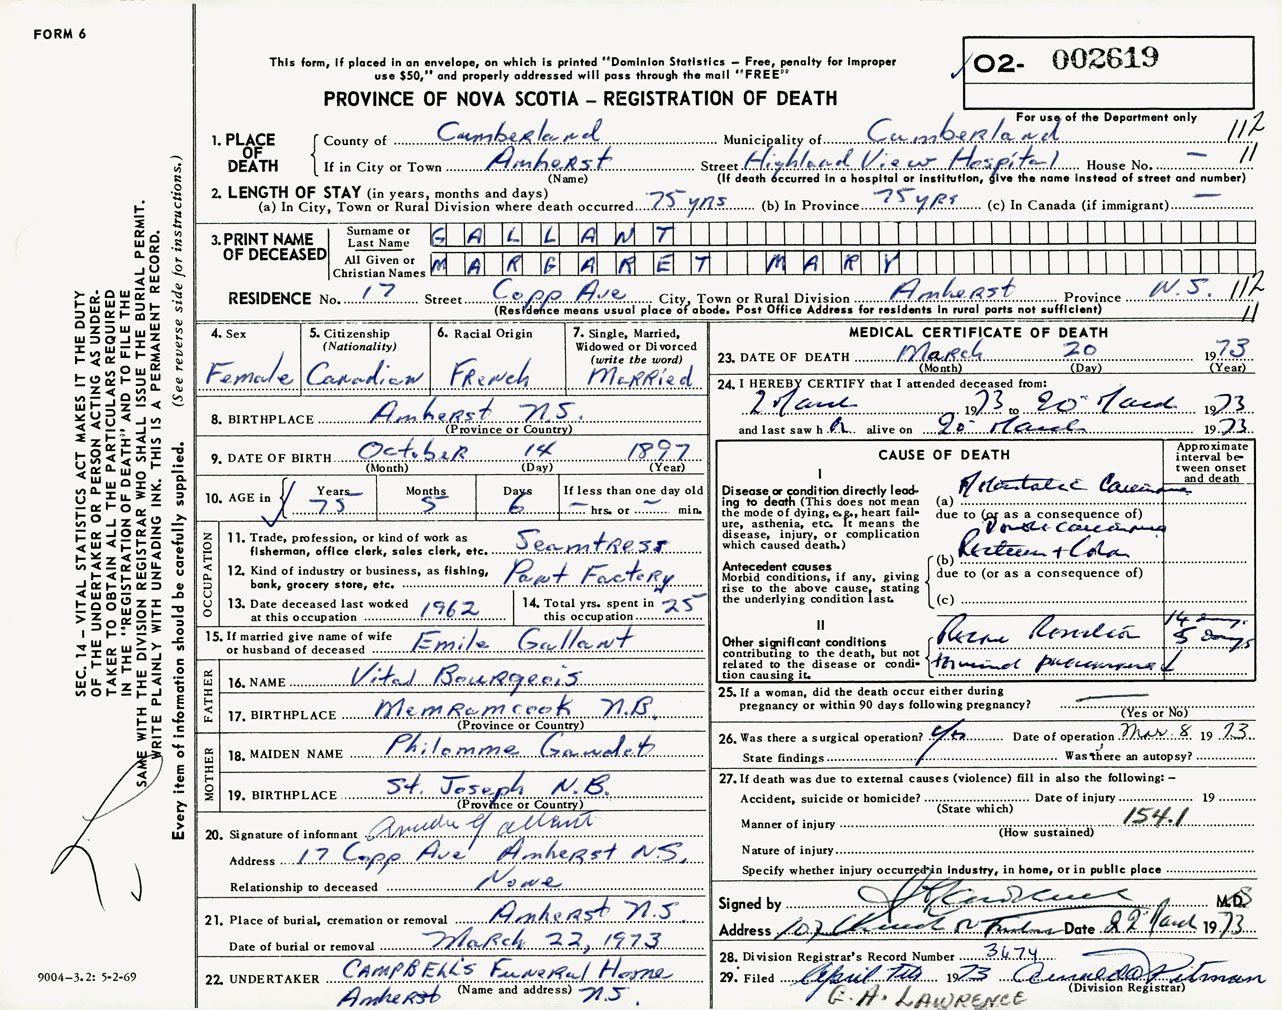 FORM 6
This form, if placed in an envelope, on which is printed "Dominion Statistics – Free, penalty for improper
use $50," and properly addressed will pass through the mail "FREE"
PROVINCE OF NOVA SCOTIA – REGISTRATION OF DEATH
O2- 002619
For use of the Department only
112
11
1. PLACE OF DEATH
County of Cumberland Municipality of Cumberland
If in City or Town Amherst Street Highland View Hospital House No. –
(Name) (If death occurred in a hospital or institution, give the name instead of street and number)
2. LENGTH OF STAY (in years, months and days)
(a) In City, Town or Rural Division where death occurred 75 yrs (b) In Province 75 yrs (c) In Canada (if immigrant) –
3. PRINT NAME OF DECEASED
Surname or Last Name GALLANT
All Given or Christian Names MARGARET MARY
RESIDENCE No. 17 Street Copp Ave City, Town or Rural Division Amherst Province N.S. 112
(Residence means usual place of abode. Post Office Address for residents in rural parts not sufficient) 11
4. Sex
Female
5. Citizenship
(Nationality)
Canadian
6. Racial Origin
French
7. Single, Married,
Widowed or Divorced
(write the word)
Married
8. BIRTHPLACE Amherst N.S.
(Province or Country)
9. DATE OF BIRTH October 14 1897
(Month) (Day) (Year)
10. AGE in
Years Months Days If less than one day old
75 5 6 – hrs. or – min.
OCCUPATION
11. Trade, profession, or kind of work as
fisherman, office clerk, sales clerk, etc. Seamtress
12. Kind of industry or business, as fishing,
bank, grocery store, etc. Pant Factory
13. Date deceased last worked
at this occupation 1962
14. Total yrs. spent in
this occupation 25
15. If married give name of wife
or husband of deceased Emile Gallant
FATHER
16. NAME Vital Bourgeois
17. BIRTHPLACE Memramcook N.B.
(Province or Country)
MOTHER
18. MAIDEN NAME Philomme Gaudet
19. BIRTHPLACE St. Joseph N.B.
(Province or Country)
20. Signature of informant Gallant
Address 17 Copp Ave Amherst N.S.
Relationship to deceased None
21. Place of burial, cremation or removal Amherst N.S.
Date of burial or removal March 22, 1973
22. UNDERTAKER CAMPBELL'S Funeral Home
(Name and address)
Amherst N.S.
MEDICAL CERTIFICATE OF DEATH
23. DATE OF DEATH March 20 1973
(Month) (Day) (Year)
24. I HEREBY CERTIFY that I attended deceased from:
2 March 1973 to 20 March 1973
and last saw her alive on 20 March 1973
CAUSE OF DEATH
Approximate
interval be-
tween onset
and death
I
Disease or condition directly lead-
ing to death (This does not mean
the mode of dying, e.g., heart fail-
ure, asthenia, etc. It means the
disease, injury, or complication
which caused death.)
(a) Metastatic Carcinoma
due to (or as a consequence of)
Double carcinoma
(b) Rectum + Colon
due to (or as a consequence of)
(c)
Antecedent causes
Morbid conditions, if any, giving
rise to the above cause, stating
the underlying condition last.
II
Other significant conditions
contributing to the death, but not
related to the disease or condi-
tion causing it.
14 days
5 days
terminal pneumonia
25. If a woman, did the death occur either during
pregnancy or within 90 days following pregnancy?
(Yes or No)
26. Was there a surgical operation? yes Date of operation Mar. 8 1973
State findings Was there an autopsy?
27. If death was due to external causes (violence) fill in also the following: –
Accident, suicide or homicide? Date of injury 19
(State which)
Manner of injury 154.1
(How sustained)
Nature of injury
Specify whether injury occurred in Industry, in home, or in public place
Signed by M.D.
Address 107 Church St Date 22 March 1973
28. Division Registrar's Record Number 3674
29. Filed April 1973 Pitman
(Division Registrar)
G. A. LAWRENCE
SEC. 14 – VITAL STATISTICS ACT MAKES IT THE DUTY
OF THE UNDERTAKER OR PERSON ACTING AS UNDER-
TAKER TO OBTAIN ALL THE PARTICULARS REQUIRED
IN THE "REGISTRATION OF DEATH" AND TO FILE THE
SAME WITH THE DIVISION REGISTRAR WHO SHALL ISSUE THE BURIAL PERMIT.
WRITE PLAINLY WITH UNFADING INK. THIS IS A PERMANENT RECORD.
Every item of information should be carefully supplied. (See reverse side for instructions.)
9004–3.2: 5-2-69